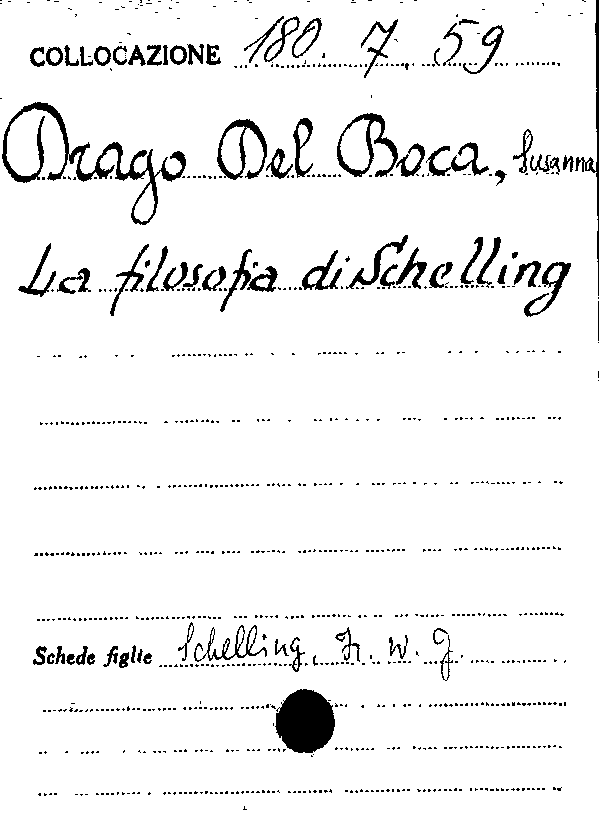 COLLOCAZIONE 180. 7. 59
Drago Del Boca, Susanna
La filosofia di Schelling
Schede figlie Schelling, Fr. W. J.